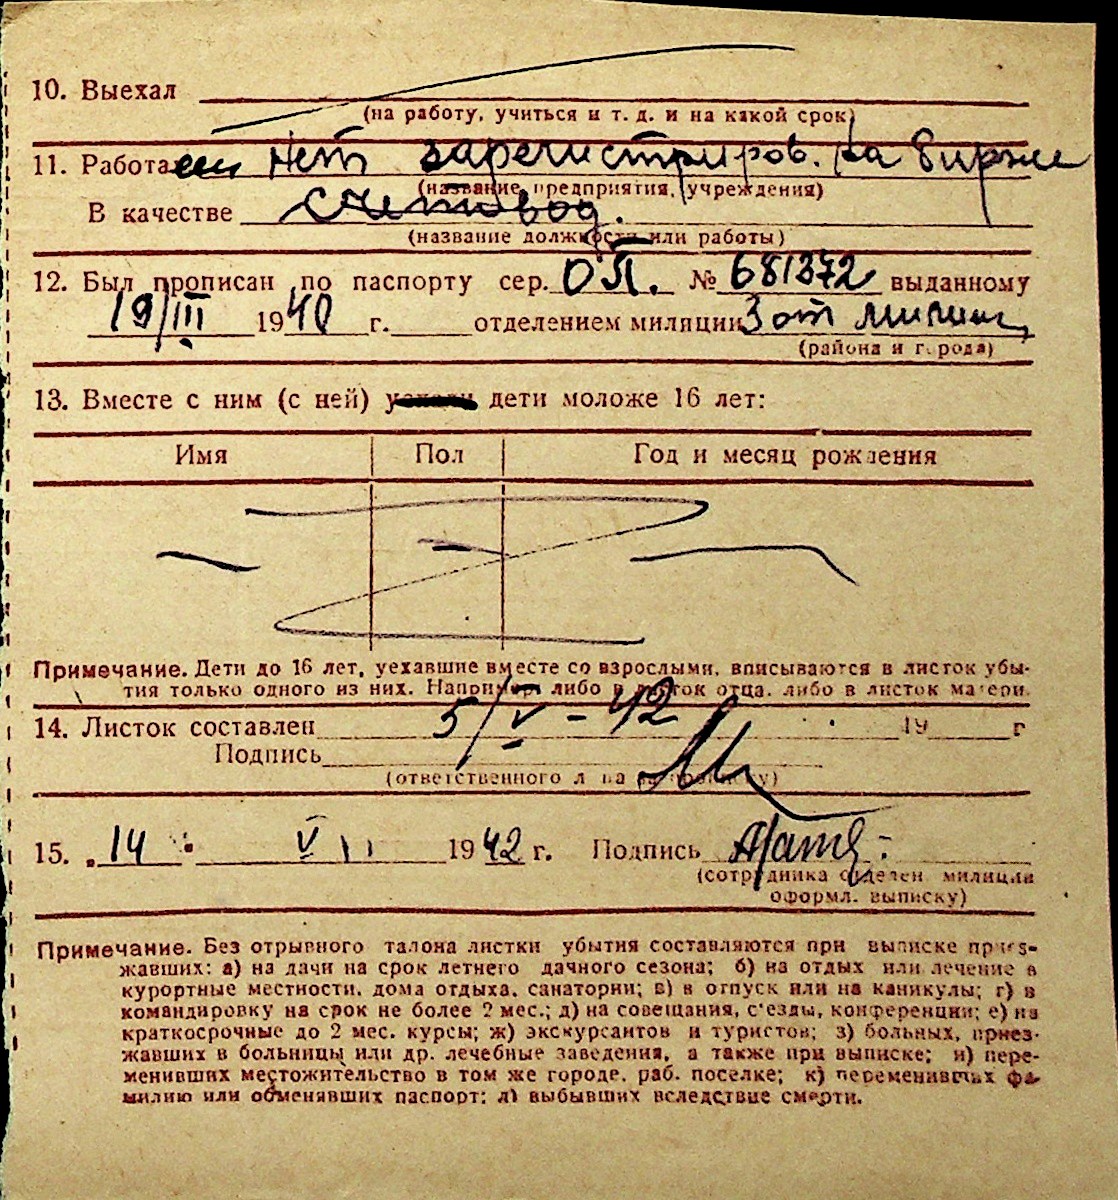 10. Выехал
(на работу, учиться и т. д. и на какой срок)
11. Работа Нет зарегистриров. на бирже
(название предприятия, учреждения)
В качестве счетовод.
(название должности или работы)
12. Был прописан по паспорту сер. ОП. № 681372 выданному
19/III 1940 г. отделением милиции 3 от милиц
(района и города)
13. Вместе с ним (с ней) уехали дети моложе 16 лет:
Имя Пол Год и месяц рождения
Примечание. Дети до 16 лет, уехавшие вместе со взрослыми, вписываются в листок убы-
тия только одного из них. Например, либо в листок отца, либо в листок матери.
14. Листок составлен 5/V - 42 19 г
Подпись
(ответственного л на за прописку)
15. 14 VII 1942 г. Подпись
(сотрудника отделен. милиции
оформл. выписку)
Примечание. Без отрывного талона листки убытия составляются при выписке приез-
жавших: а) на дачи на срок летнего дачного сезона; б) на отдых или лечение в
курортные местности, дома отдыха, санатории; в) в отпуск или на каникулы; г) в
командировку на срок не более 2 мес.; д) на совещания, с'езды, конференции; е) на
краткосрочные до 2 мес. курсы; ж) экскурсантов и туристов; з) больных, приез-
жавших в больницы или др. лечебные заведения, а также при выписке; и) пере-
менивших местожительство в том же городе, раб. поселке; к) переменивших фа-
милию или обменявших паспорт; л) выбывших вследствие смерти.